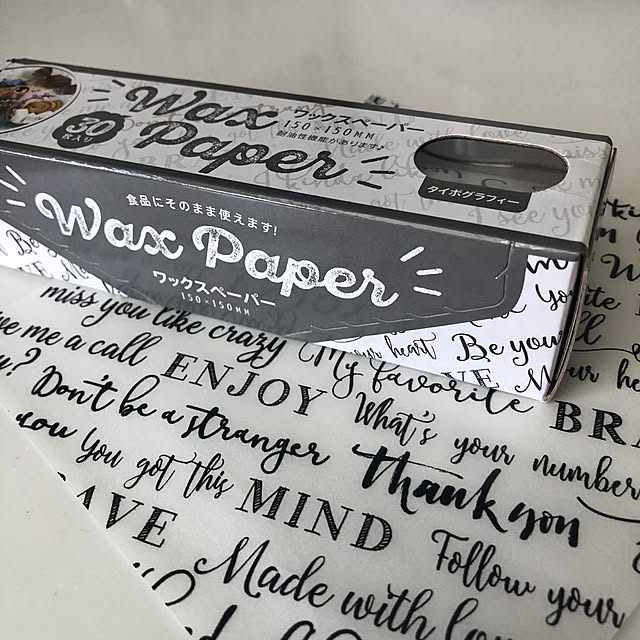 Wax Paper
ワックスペーパー
150×150MM
耐油性機能があります。
30
枚入り
タイポグラフィー
with love
I kinda
I see you
食品にそのまま使えます!
Wax Paper
ワックスペーパー
150×150MM
Be you
your heart
miss you like crazy
me a call
ENJOY
My favorite
BRA
Don't be a stranger
What's your number
you
You got this
MIND
thank you
AVE
Follow your
Made with lo